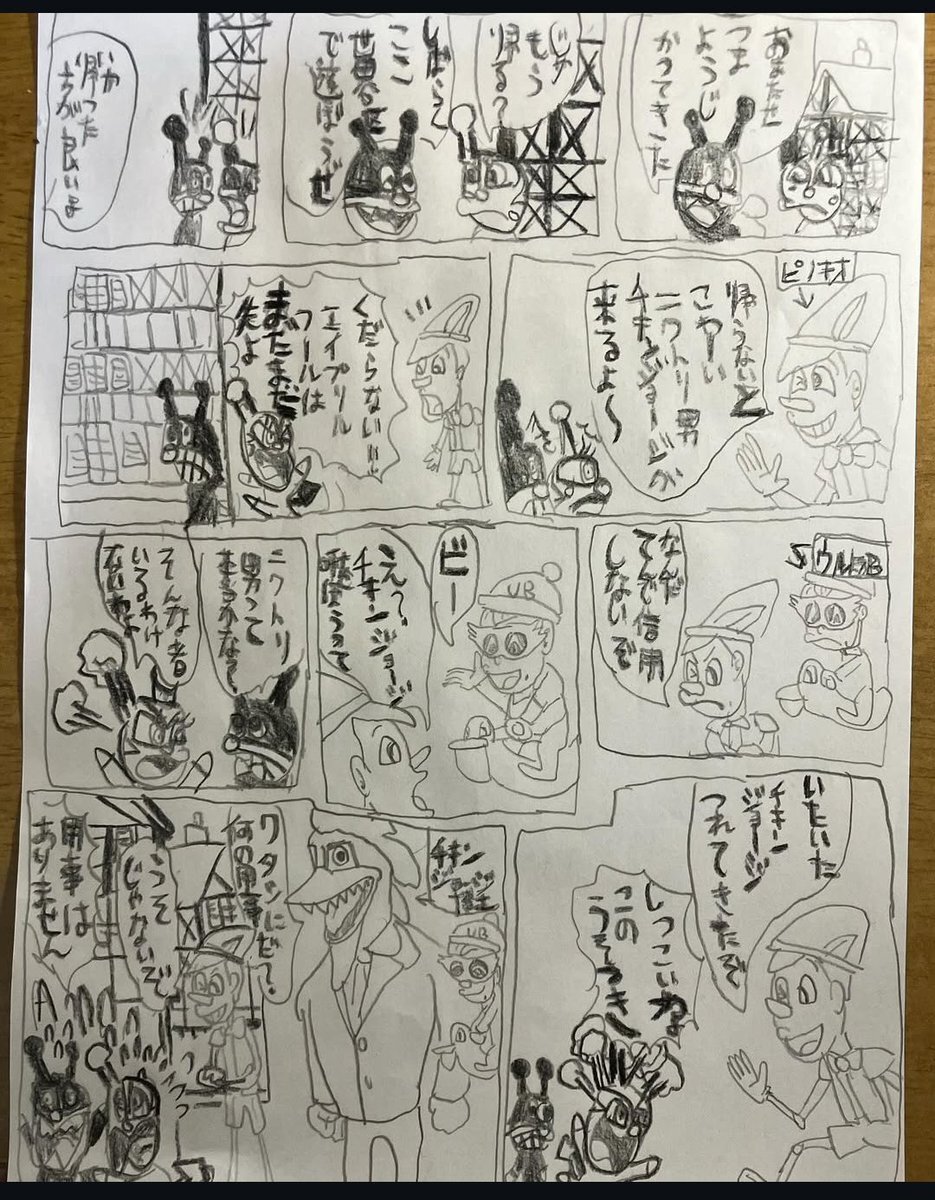 おまたせ
つまようじ
かってきた
じゃ
もう
帰る?
しばらく
ここ
世界を
で遊ぼうぜ
いや
帰った
方が良いよ
ピノキオ
帰らないと
こわーい
ニワトリ男
チキンジョージが
来るよ〜
くだらない!!
エイプリル
フールは
まだまだ
先よ
なんだ
てんで信用
しないぞ
UB
ビー
えっ、
チキンジョージ
呼ぼうって
ニワトリ
男って
来るかな?
そんな者
いるわけ
ないわよ
いたいた
チキン
ジョージ
つれてきたぞ
しつこいわね
このうそつき
チキン
ジョージ
UB
ワタシにど?
何の用事
うそ
じゃないぞ
用事は
ありません